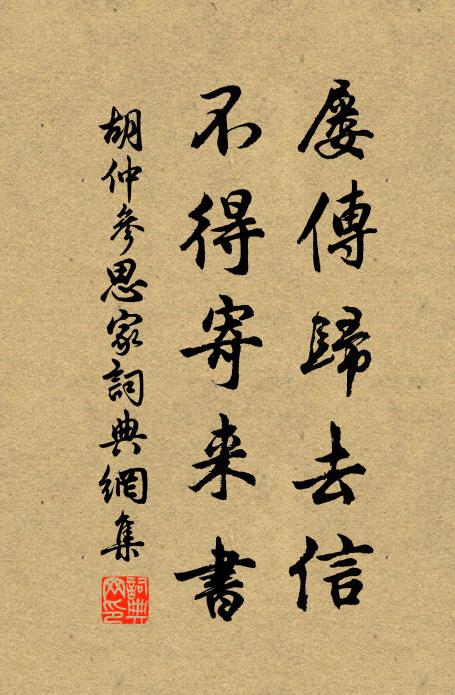 屡傳歸去信
不得寄来書
胡仲參思家詞典網集
詞典网印